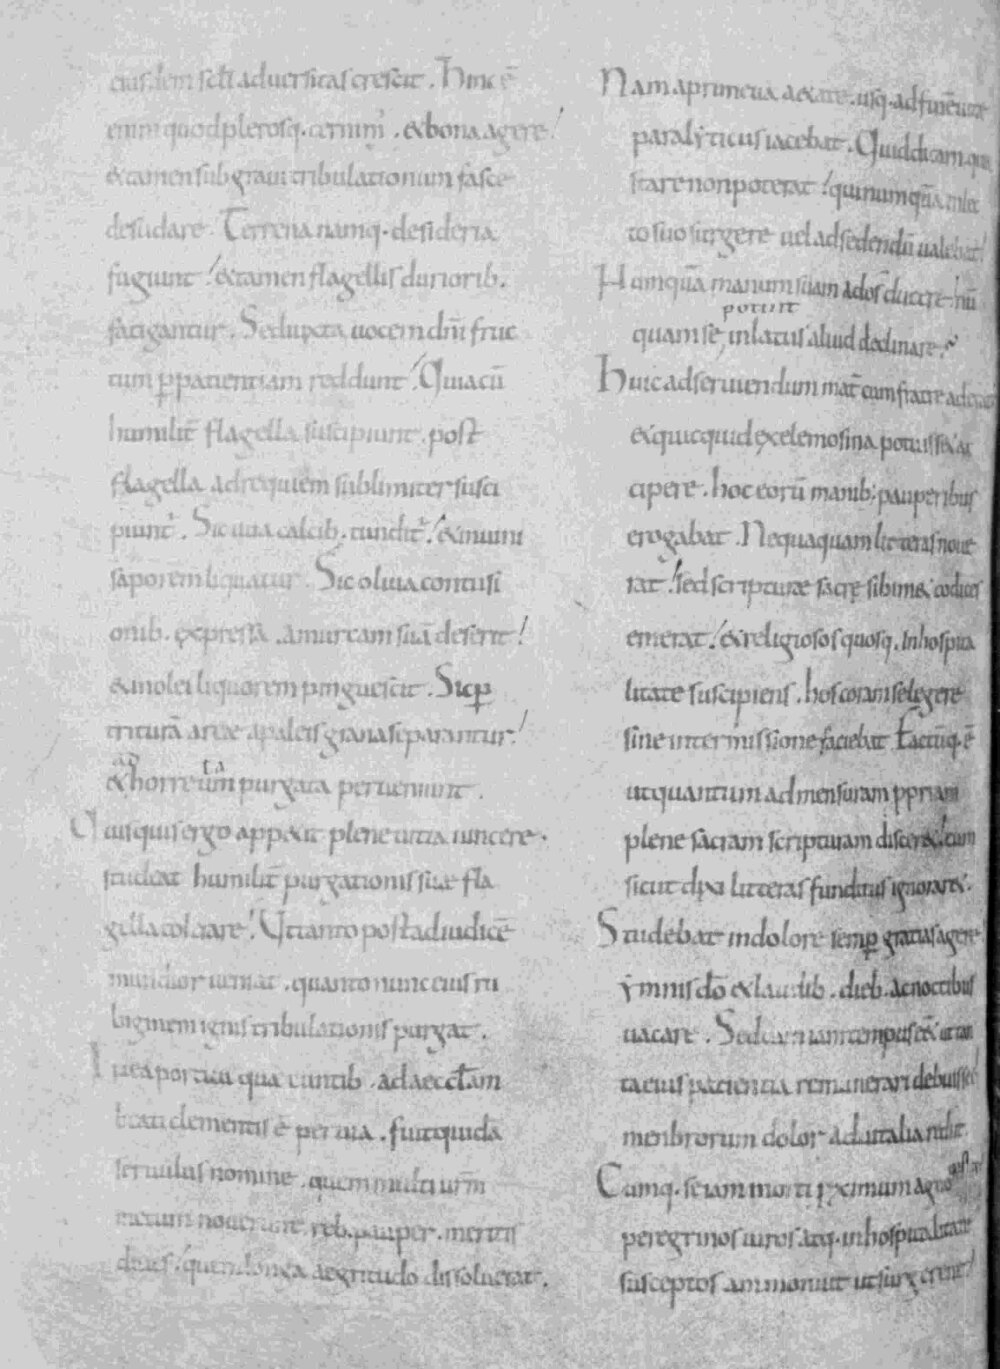 eiusdem scłi aduersitas crescit. Hinc ē
enim quod plerosq· cernim᷒. & bona agere!
& tamen sub graui tribulationum fasce
desudare. Terrena namq· desideria
fugiunt! & tamen flagellis durioribˑ
fatigantur. Sed iuxta uocem dn̄i fruc
tum p̱ patientiam reddunt! Quia cū
humilit̄ flagella suscipiunt. post
flagella ad requiem sublimiter susci
piunt᷒. Sic uua calcibˑ tundit᷒! & in uini
saporem liquatur. Sic oliua contusi
onibˑ expressa. amurcam suā deserit!
& in olei liquorem pinguescit. Sic p̱
triturā areae a paleis grana separantur!
& ad horreum purgata perueniunt.
Quisquis ergo appetit plene uitia uincere.
studeat humilit̄ purgationis suae fla
gella tolerare! Ut tanto post ad iudicē
mundior ueniat. quanto nunc eius ru
biginem ignis tribulationis purgat.
In ea porticu qua euntibˑ ad aeccłam
beati clementis ē peruia. fuit quidā
seruulus nomine. quem multi ur̄m
mecum nouerunt. rebˑ pauper. meritis
diues! quem longa aegritudo dissoluerat.
Nam a primeua aetate. usq· ad finē uitae
paralyticus iacebat. Quid dicam quia
stare non poterat! qui numquā in lec
to suo surgere uel ad sedendū ualebat!
Numquā manum suam ad os ducere. nū
quam se potuit in latus aliud declinare.
Huic ad seruiendum mat̄ cum fratre aderat
& quicquid ex elemosina potuisset ac
cipere. hoc eorū manibˑ pauperibus
erogabat. Nequaquam litteras noue
rat! sed scripturae sacrę sibimet codices
emerat! & religiosos quosq· in hospita
litate suscipiens. hos coram se legere
sine intermissione faciebat. Factūq· ē
ut quantum ad mensuram p̱priam
plene sacram scripturam disceret! cum
sicut dixi litteras funditus ignoraret.
Studebat in dolore semp̱ gratias agere
ymnis dō & laudibˑ diebˑ ac noctibus
uacare. Sed cum iam tempus eēt ut tan
ta eius patientia remunerari debuisset
menbrorum dolor ad uitalia rediit.
Cumq· se iam morti p̱ximum agnouisset
peregrinos uiros. atq· in hospitalitate
susceptos ammonuit ut surgerent!